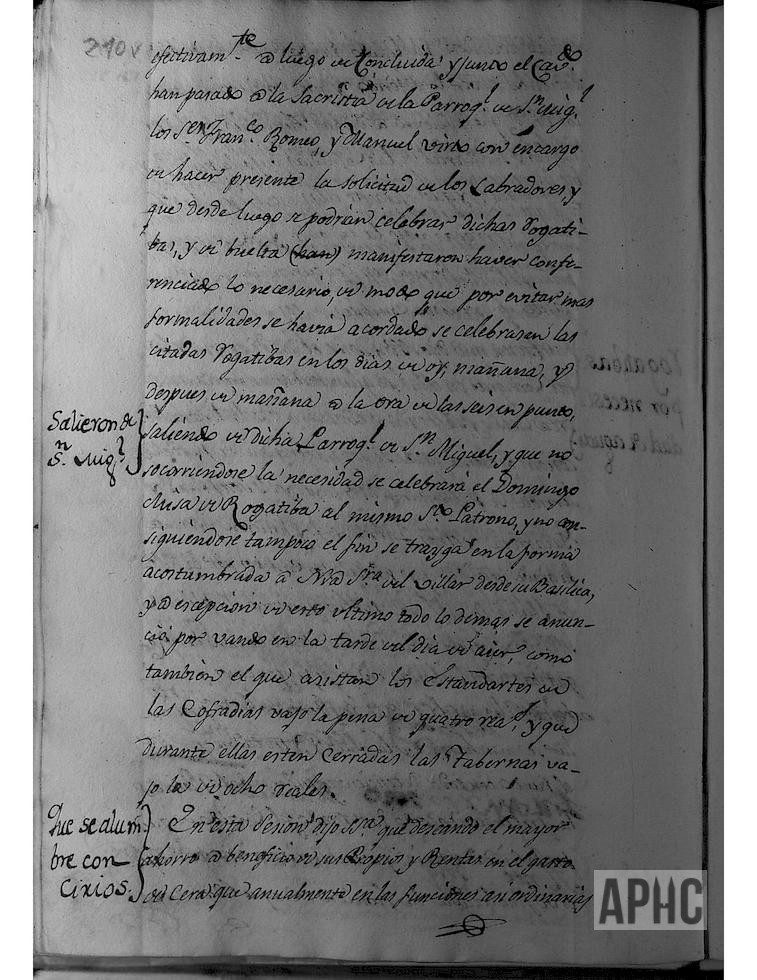 210v
efectivam.te a luego de Concluida y junto el Cav.do
han pasado a la Sacristia de la Parroq.l de S.n Mig.l
los S.res Fran.co Romeo, y Manuel Virto con encargo
de hacer presente la solicitud de los Labradores, y
que desde luego se podrian celebrar dichas Rogati-
bas, y de buelta (han) manifestaron haver confe-
renciado lo necesario, de modo que por evitar mas
formalidades se havia acordado se celebrasen las
citadas Rogatibas en los dias de oy, mañana, y
despues de mañana a la ora de las seis en punto,
Salieron de
S.n Mig.l
saliendo de dicha Parroq.l de S.n Miguel, y que no
socorriendose la necesidad se celebrará el Domingo
Misa de Rogatiba al mismo S.to Patrono, y no con-
siguiendose tampoco el fin se trayga en la forma
acostumbrada a Nra Sra del Villar desde su Basilica,
y a escepcion de esto ultimo todo lo demas se anun-
ció por vando en la tarde del dia de aier, como
tambien el que asistan los Estandartes de
las Cofradias vajo la pena de quatro rea.s, y que
durante ellas esten Cerradas las Tabernas va-
jo la de ocho reales.
Que se alum
bre con
Cirios.
En esta Sesion dijo S.ria que deseando el mayor
ahorro a beneficio de sus Propios y Rentas en el gasto
de Cera que anualmente en las funciones asi ordinarias
APHC